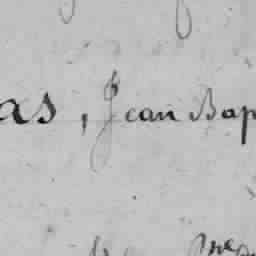 as, Jean Bap